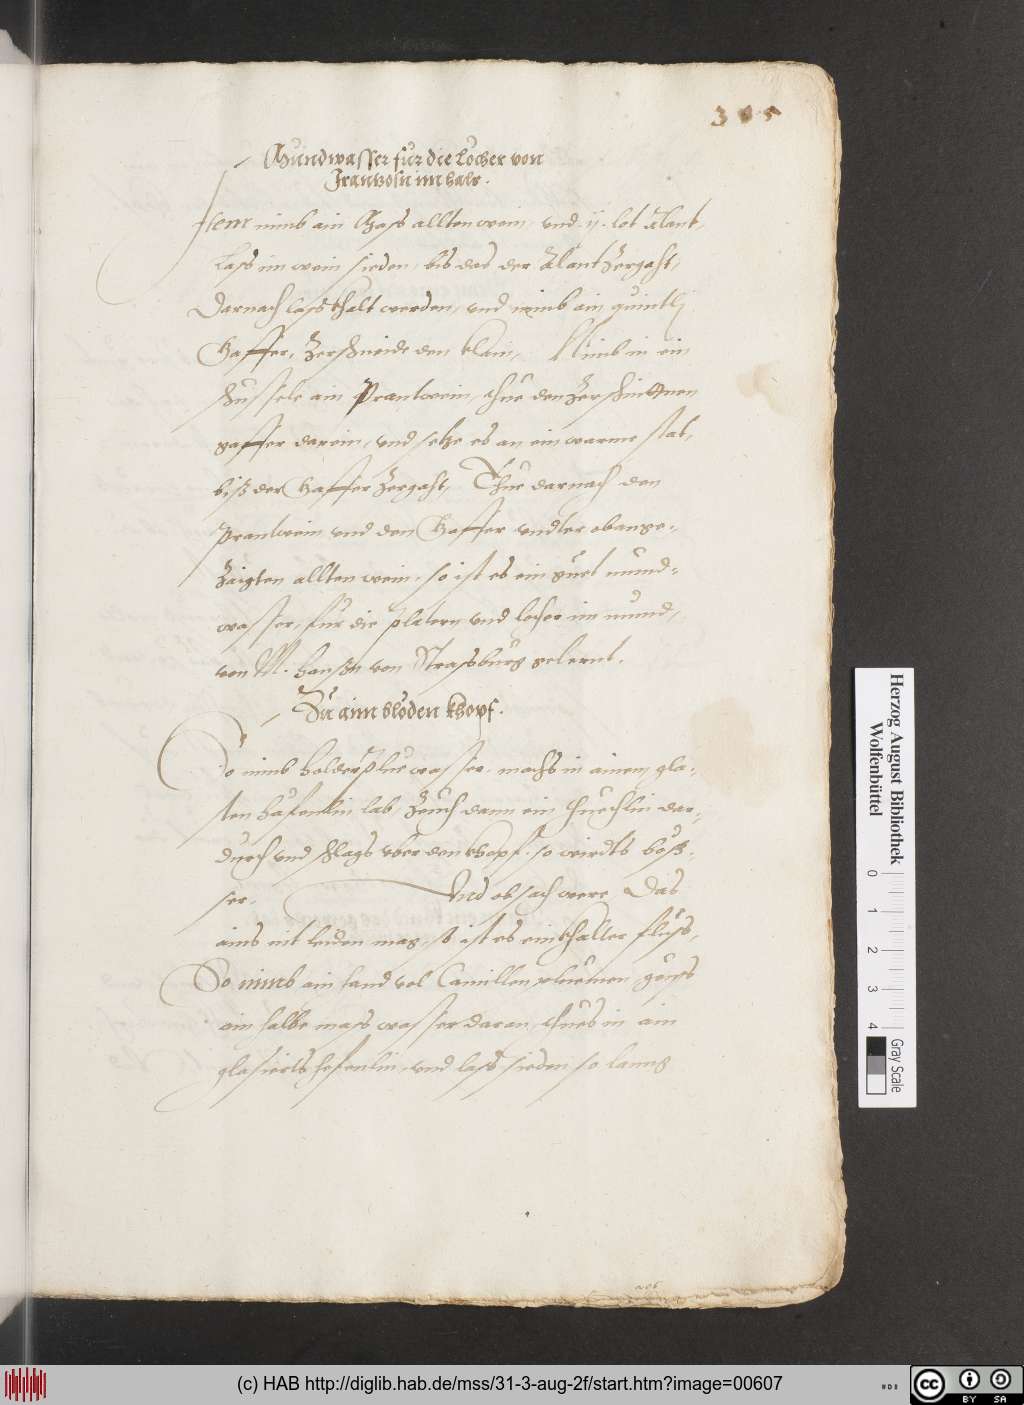 305
Mundwasser fur die Löcher von
Franzosn im hals.
Item nimb ain Mass allten wein, und .ij. lot Alant,
Lass im wein sieden, bis das der Alant zergaht,
Darnach lass khalt werden, und nimb ain quintlj
Gaffer, zerschneide den klain, Nimb in ein
schüssele ain Prantwein, thue den zerschnittnen
gaffer darein, und setze es an ein warme stat,
biß der Gaffer zergaht, Thue darnach den
prantwein und den Gaffer undter obange-
zaigten allten wein, so ist es ein guet mund-
wasser, für die platern und locher im mund,
von M. Hansn von Strassburg gelernt.
Zu aim blöden khopf.
So nimb Holderplue wasser, machs in ainem gla-
sten häfenlin lab, zeuch dann ein thuechlin dar-
durch und schlags uber den khopf, so wirdts bess-
ser. Und ob sach were Das
ains nit leiden mag, so ist es ein khalter fluss,
So nimb ain hand vol Camillen pluemen, geuss
ain halbe mass wasser daran, thues in ain
glasierts hefenlin, und lass sieden so lanng
Herzog August Bibliothek
Wolfenbüttel
0 1 2 3 4
Gray Scale
(c) HAB http://diglib.hab.de/mss/31-3-aug-2f/start.htm?image=00607
cc BY SA